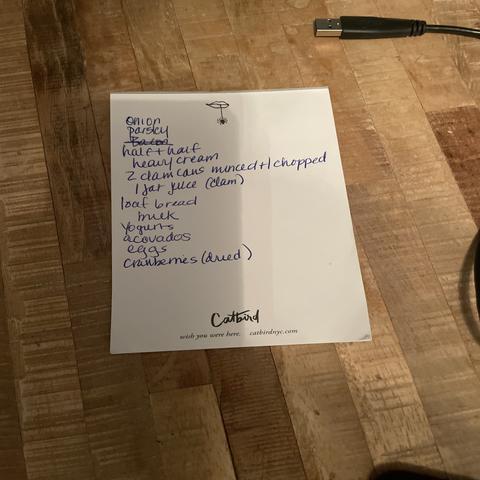 Onion
Parsley
Bacon
half + half
heavy cream
2 clam cans minced + 1 chopped
1 Jar juice (clam)
loaf bread
milk
Yogurts
acovados
eggs
Cranberries (dried)
Catbird
wish you were here. catbirdnyc.com